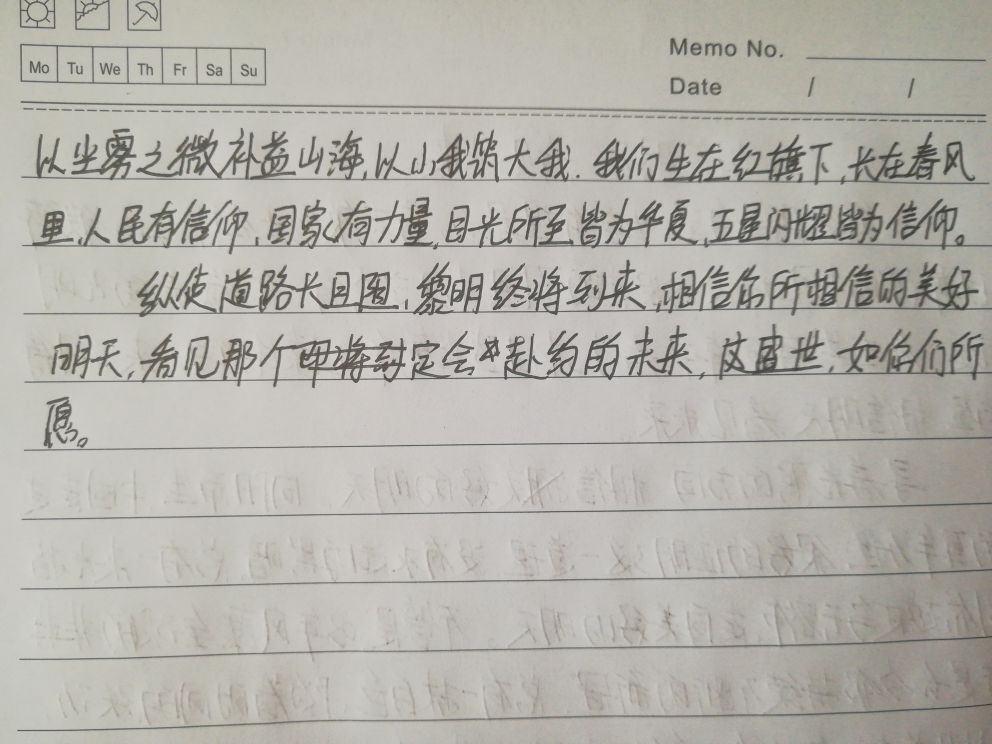 Mo Tu We Th Fr Sa Su
Memo No.
Date / /
以尘雾之微补益山海,以小我筑大我.我们生在红旗下,长在春风
里,人民有信仰,国家有力量,目光所至皆为华夏,五星闪耀皆为信仰。
纵使道路长且阻,黎明终将到来,相信你所相信的美好
明天,看见那个定会赴约的未来,这盛世,如你们所
愿。